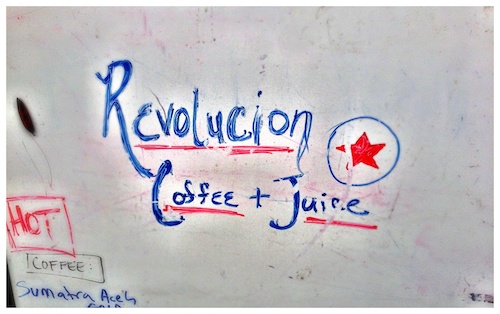 Revolucion
Coffee + Juice
HOT
COFFEE:
Sumatra Aceh